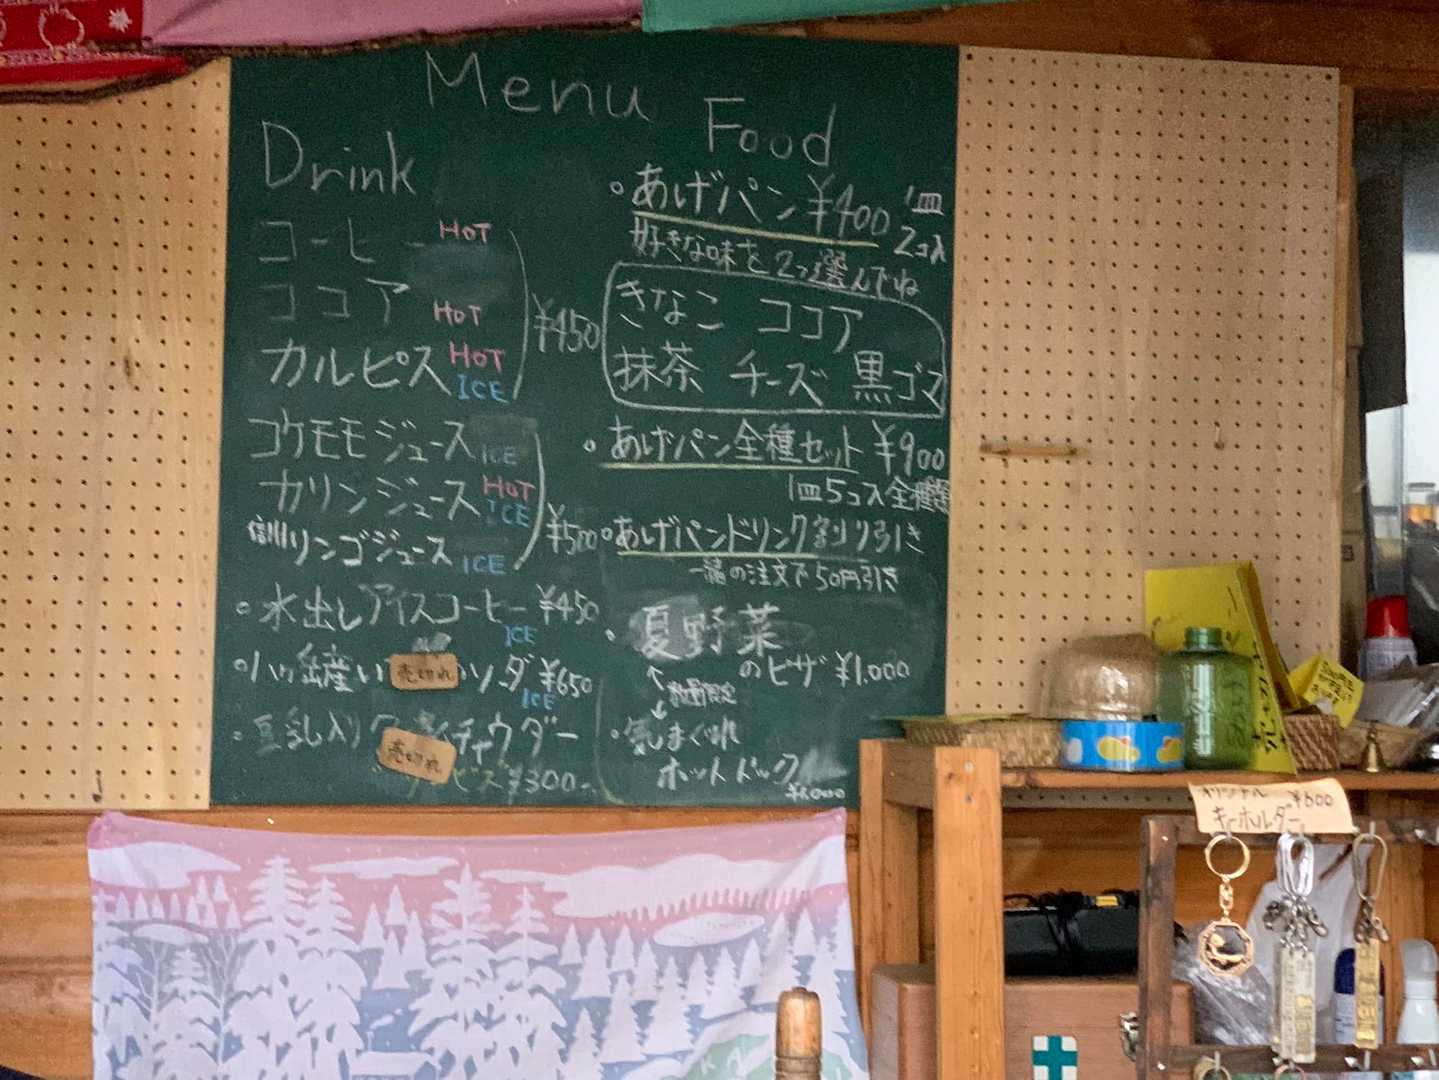 Menu
Drink
コーヒー HOT
ココア HOT
カルピス HOT ICE
¥450
コケモモジュース ICE
カリンジュース HOT ICE
信州リンゴジュース ICE
¥500
・水出しアイスコーヒー ¥450
ICE
売切れ ソーダ ¥650
ICE
・豆乳入り チャウダー
売切れ
¥300
Food
・あげパン ¥400 1皿 2コ入
好きな味を2つ選んでね
きなこ ココア
抹茶 チーズ 黒ゴマ
・あげパン全種セット ¥900
1皿5コ入全種類
・あげパンドリンク割り引き
一緒の注文で50円引き
・夏野菜
のピザ ¥1,000
数量限定
・気まぐれ
ホットドック
¥1,000
オリジナル ¥600
キーホルダー